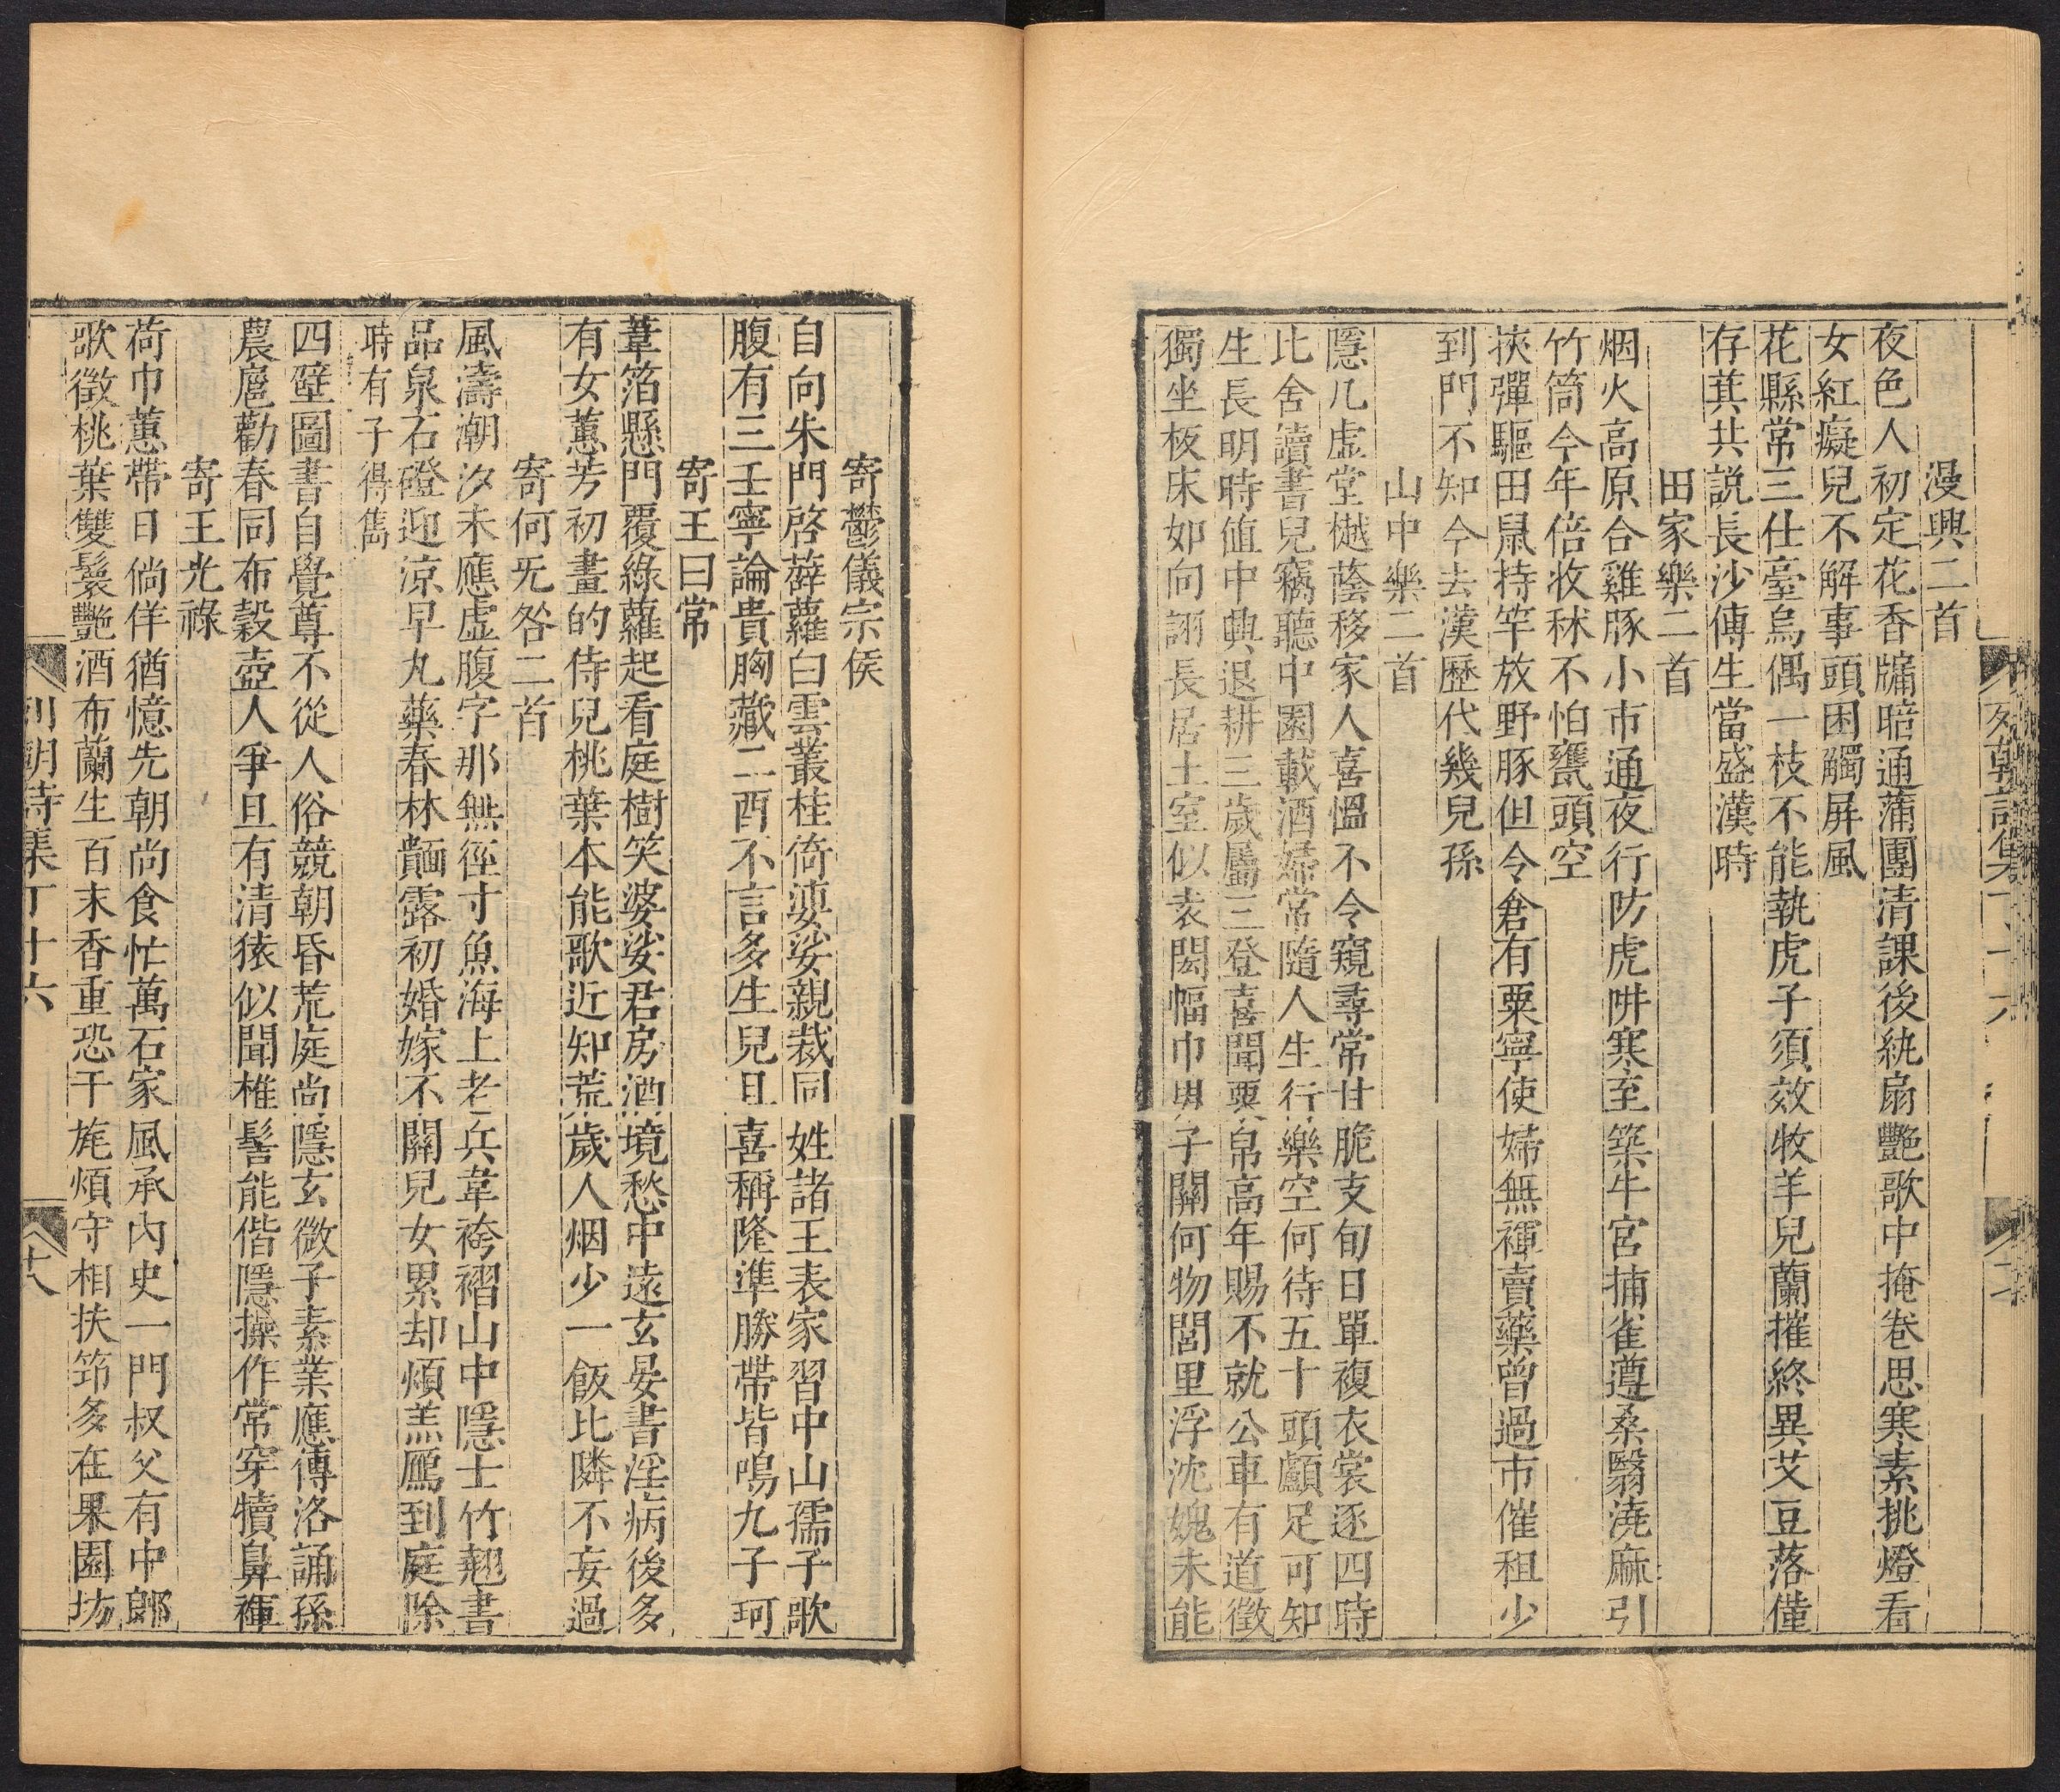 漫興二首
夜色人初定花香牖暗通蒲團清課後紈扇艷歌中掩卷思寒素挑燈看
女紅癡兒不解事頭困觸屏風
花縣常三仕臺烏偶一枝不能執虎子須效牧羊兒蘭摧終異艾豆落僅
存萁共説長沙傳生當盛漢時
田家樂二首
烟火高原合雞豚小市通夜行防虎阱寒至築牛宮捕雀遵桑翳澆麻引
竹筒今年倍收秫不怕甕頭空
挾彈驅田鼠持竿放野豚但令倉有粟寧使婦無褌賣藥曾過市催租少
到門不知今去漢歷代幾兒孫
山中樂二首
隱几虛堂樾蔭移家人喜慍不令窺尋常甘脆支旬日單複衣裳逐四時
比舍讀書兒竊聽中園載酒婦常隨人生行樂空何待五十頭顱足可知
生長明時値中興退耕三歲屬三登喜聞粟帛高年賜不就公車有道徵
獨坐板床如向詡長居土室似袁閎幅巾男子關何物閭里浮沈媿未能
寄鬱儀宗侯
自向朱門啓薜蘿白雲叢桂倚婆娑親裁同姓諸王表家習中山孺子歌
腹有三壬寧論貴胸藏二酉不言多生兒且喜稱隆準勝帶皆鳴九子珂
寄王曰常
葦箔懸門覆綠蘿起看庭樹笑婆娑君房酒境愁中遠玄晏書淫病後多
有女蕙芳初畫的侍兒桃葉本能歌近知荒歲人烟少一飯比隣不妄過
寄何旡咎二首
風濤潮汐未應虛腹字那無徑寸魚海上老兵韋袴褶山中隱士竹翹書
品泉石磴迎涼早丸藥春林靧露初婚嫁不關兒女累却煩羔鴈到庭除
時有子得雋
四壁圖書自覺尊不從人俗競朝昏荒庭尚隱玄微子素業應傳洛誦孫
農扈勸春同布穀壺人爭旦有清猿似聞椎髻能偕隱操作常穿犢鼻褌
寄王光祿
荷巾蕙帶日倘佯猶憶先朝尚食忙萬石家風承內史一門叔父有中郎
歌徵桃葉雙鬟艷酒布蘭生百末香重恐干旄煩守相扶筇多在果園坊
列朝詩集丁十六
十八